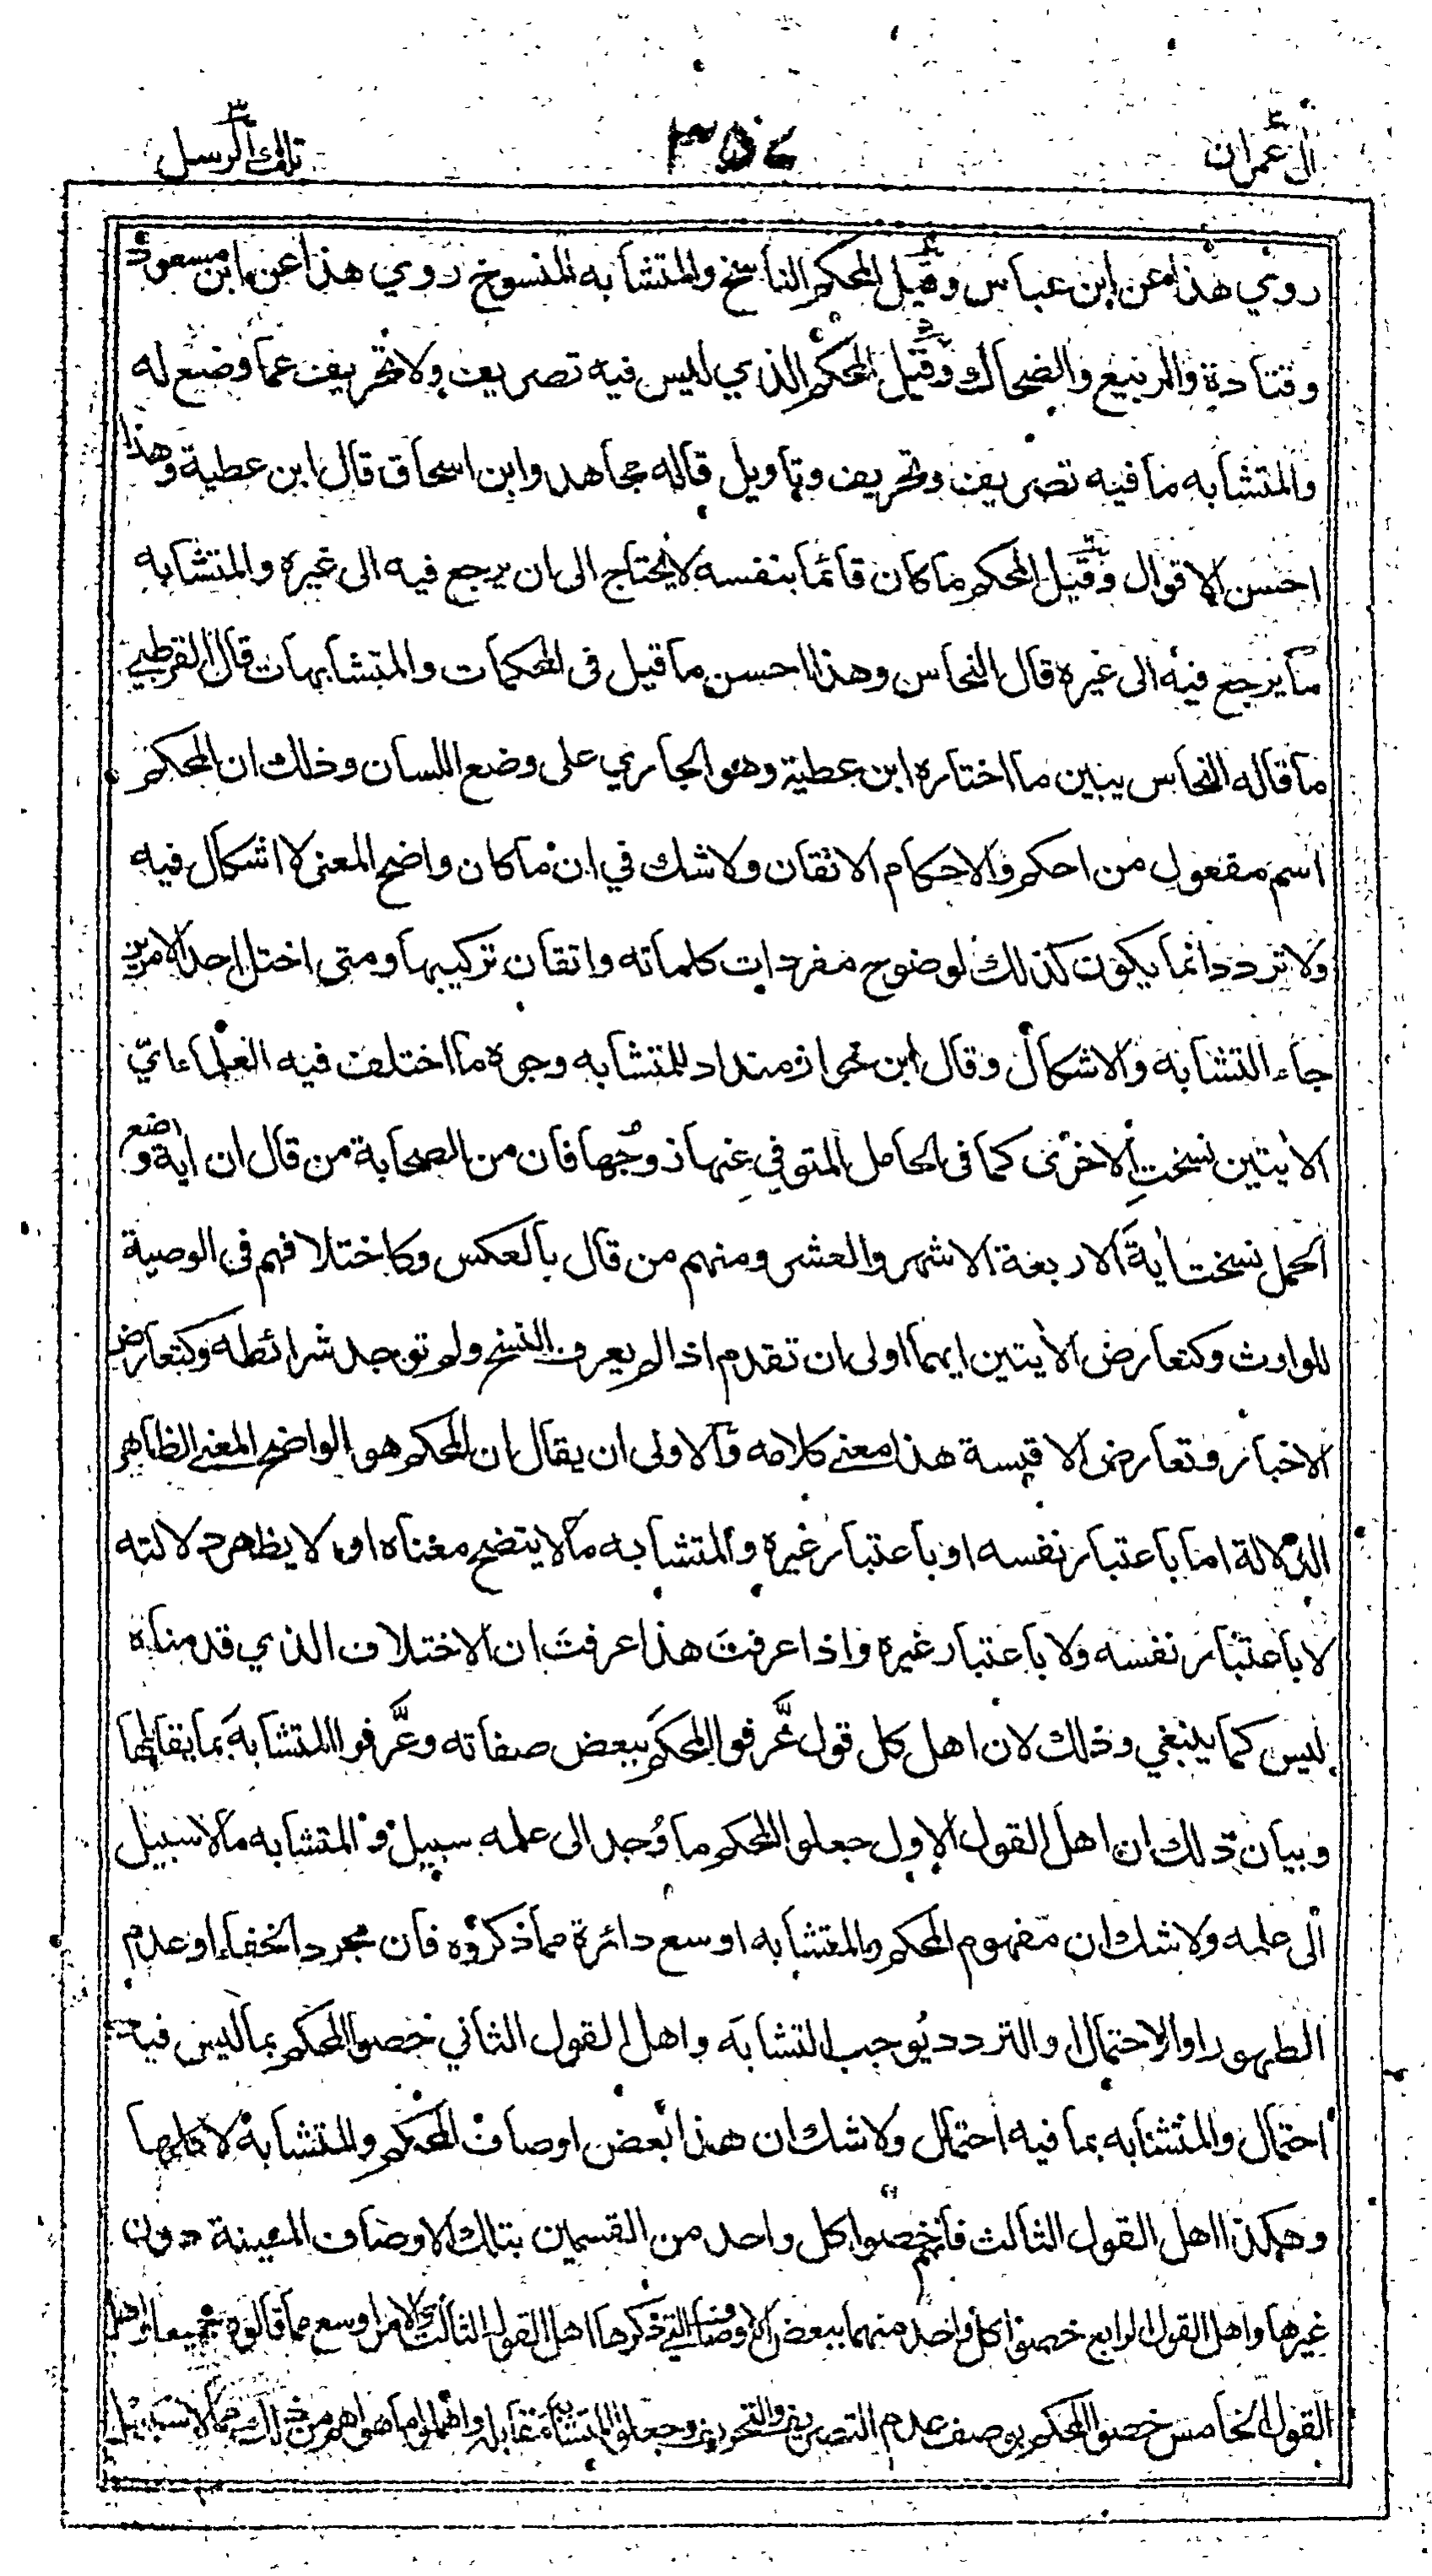 آل عمران ٣٥٤ تلك الرسل ٣
روي هذا عن ابن عباس وقيل المحكم الناسخ والمتشابه المنسوخ روي هذا عن ابن مسعود
وقتادة والربيع والضحاك وقيل المحكم الذي ليس فيه تصريف ولا تحريف عما وضع له
والمتشابه ما فيه تصريف وتحريف وتاويل قاله مجاهد وابن اسحاق قال ابن عطية وهذا
احسن الاقوال وقيل المحكم ما كان قائما بنفسه لا يحتاج الى ان يرجع فيه الى غيره والمتشابه
ما يرجع فيه الى غيره قال النحاس وهذا احسن ما قيل في المحكمات والمتشابهات قال القرطبي
ما قاله النحاس يبين ما اختاره ابن عطية وهو الجاري على وضع اللسان وذلك ان المحكم
اسم مفعول من احكم والاحكام الاتقان ولا شك في ان ما كان واضح المعنى لا اشكال فيه
ولا تردد انما يكون كذلك لوضوح مفردات كلماته واتقان تركيبها ومتى اختل احد الامرين
جاء التشابه والاشكال وقال ابن خوازمنداد للمتشابه وجوه ما اختلف فيه العلماء ايّ
الايتين نسخت الاخرى كما في الحامل المتوفي عنها زوجها فان من الصحابة من قال ان اية وضع
الحمل نسخت اية الاربعة الاشهر والعشر ومنهم من قال بالعكس وكاختلافهم في الوصية
للوارث وكتعارض الايتين ايهما اولى ان تقدم اذا لم يعرف النسخ ولم توجد شرائطه وكتعارض
الاخبار وتعارض الاقيسة هذا معنى كلامه والاولى ان يقال ان المحكم هو الواضح المعنى الظاهر
الدلالة اما باعتبار نفسه او باعتبار غيره والمتشابه ما لا يتضح معناه او لا يظهر دلالته
لا باعتبار نفسه ولا باعتبار غيره واذا عرفتَ هذا عرفتَ ان الاختلاف الذي قدمناه
ليس كما ينبغي وذلك لان اهل كل قول عَرَّفوا المحكمَ ببعض صفاته وعَرَّفوا المتشابهَ بما يقابلها
وبيان ذلك ان اهل القول الاول جعلوا المحكم ما وُجد الى علمه سبيل و المتشابه ما لا سبيل
الى علمه ولا شك ان مفهوم المحكم والمتشابه اوسع دائرة مما ذكروه فان مجرد الخفاء او عدم
الظهور او الاحتمال او التردد يُوجب التشابَه واهل القول الثاني خصوا المحكم بما ليس فيه
احتمال والمتشابه بما فيه احتمال ولا شك ان هذا بعض اوصاف المحكم والمتشابه لا كلها
وهكذا اهل القول الثالث فانهم خصوا كل واحد من القسمين بتلك الاوصاف المعينة دون
غيرها واهل القول الرابع خصوا كل واحد منهما ببعض الاوصاف التي ذكرها اهل القول الثالث والامر اوسع مما قالوه جميعا واهل
القول الخامس خصوا المحكم بوصف عدم التصريف والتحريف وجعلوا المتشابه مقابله واهملوا ما هو اهم من ذلك مما لا سبيل